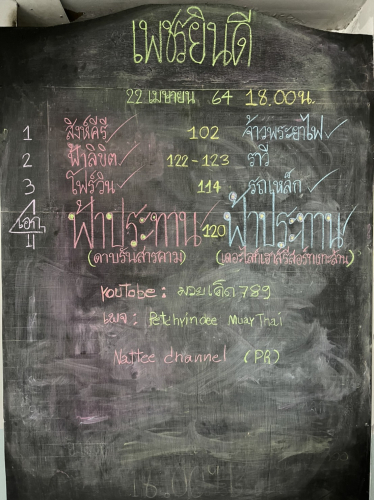 เพชรยินดี
22 เมษายน 64 18.00น.
1 สิงห์คีรี 102 จ้าวพระยาไฟ
2 ฟ้าลิขิต 122-123 ราวี
3 โฟร์วิน 114 รถเหล็ก
เอก 4 ฟ้าประทาน 120 ฟ้าประทาน
(ดาบรันสารคาม)
YouTobe: มวยเด็ด789
เพจ: Petchyindee Muay Thai
Nattee channel (PR)